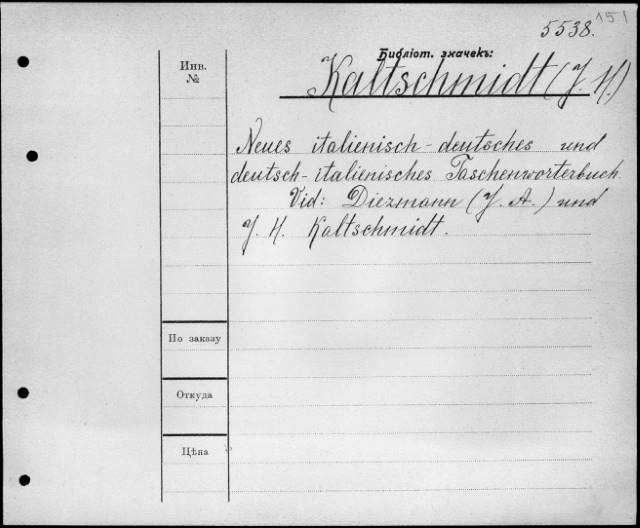 151
5538.
Инв.
№
Библіот. значекъ:
Kaltschmidt (J. H.)
Neues italienisch-deutsches und
deutsch-italienisches Taschenworterbuch
Vid: Diezmann (J. A.) und
J. H. Kaltschmidt.
По заказу
Откуда
Цѣна